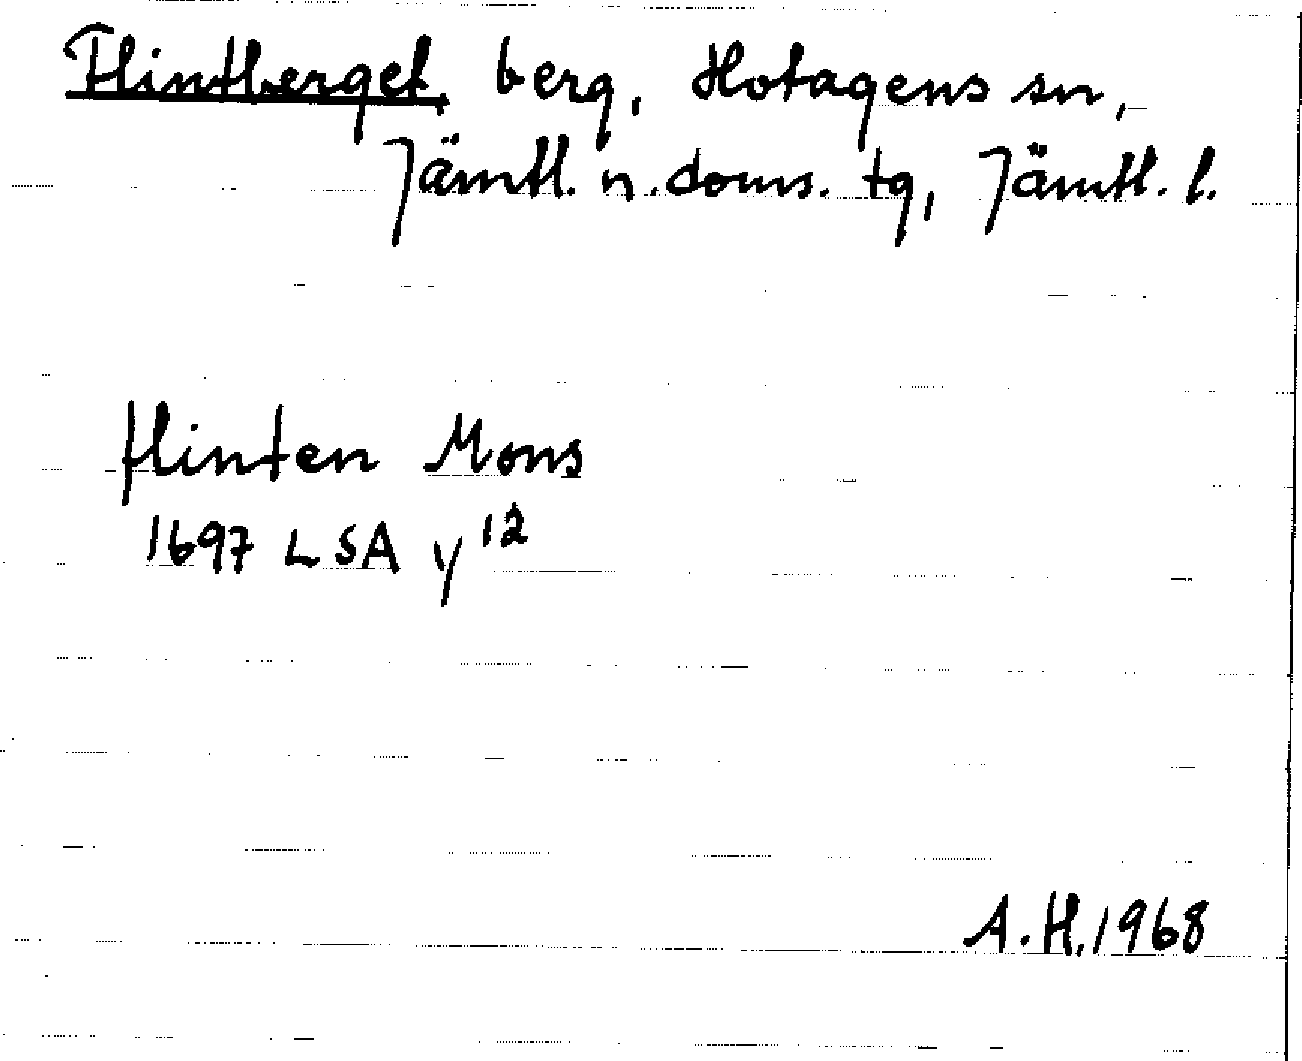 Flintberget, berg, Hotagens sn,
Jämtl. n. doms. tg, Jämtl. l.
flinten Mons
1697 LSA y 12
A.H. 1968